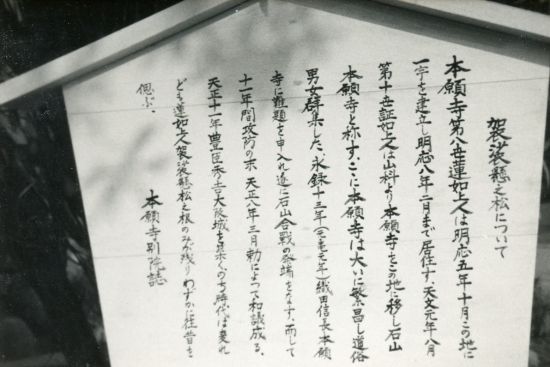 袈裟懸之松について
本願寺第八世蓮如上人は明応五年十月この地に
一宇を建立し明応八年二月まで居住す、天文元年八月
第十世証如上人は山科より本願寺をこの地に移し石山
本願寺と称す、ここに本願寺は大いに繁昌し道俗
男女群集した、永録十三年(元亀元年)織田信長本願
寺に難題を申入れ遂に石山合戦の発端をなす、而して
十一年間攻防の末天正八年三月勅によって和議成る、
天正十一年豊臣秀吉大阪城を築くのち時代は変れ
ども蓮如上人袈裟懸松之根のみが残りわずかに往昔を
偲ぶ、
本願寺別院誌